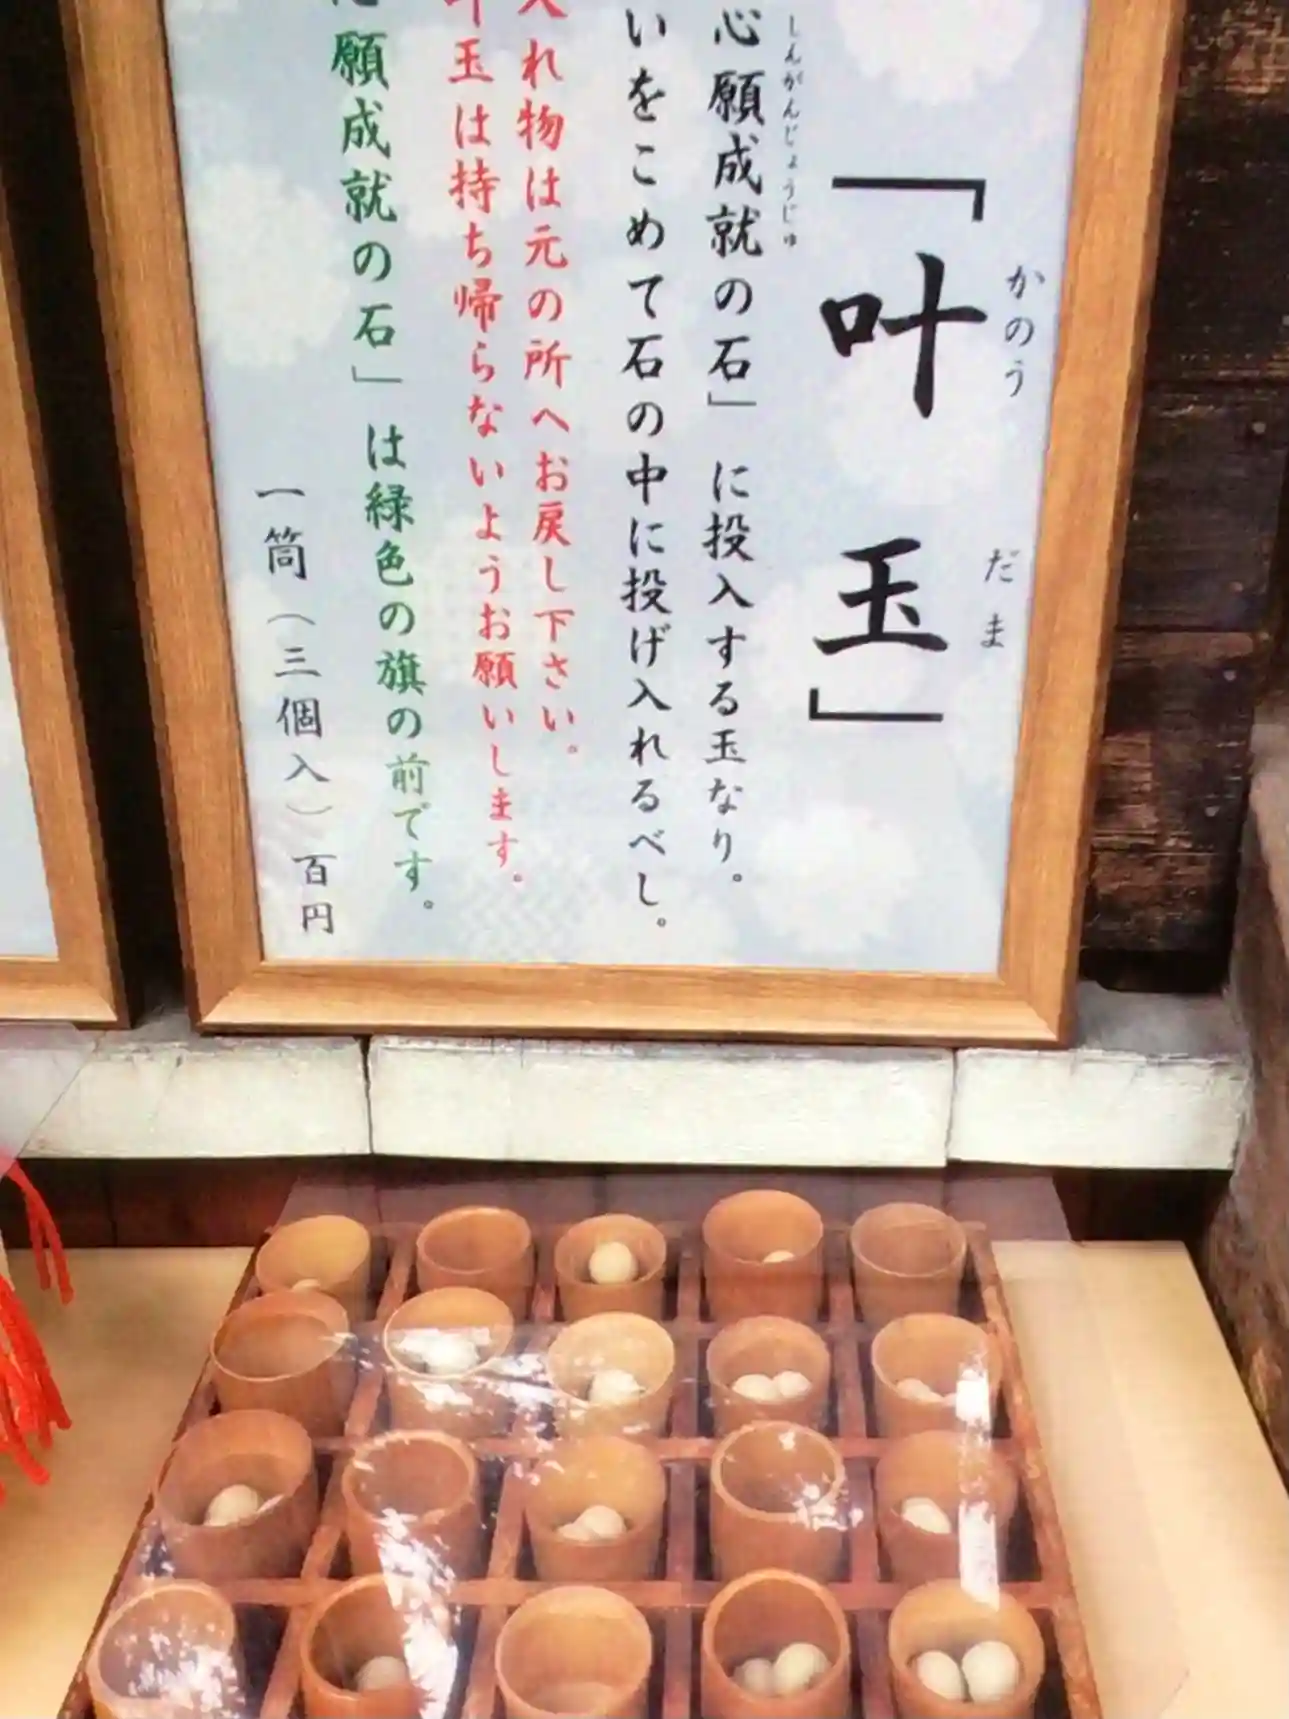 「叶玉」
かのう だま
心願成就の石」に投入する玉なり。
しんがんじょうじゅ
いをこめて石の中に投げ入れるべし。
入れ物は元の所へお戻し下さい。
叶玉は持ち帰らないようお願いします。
心願成就の石」は緑色の旗の前です。
一筒（三個入）百円